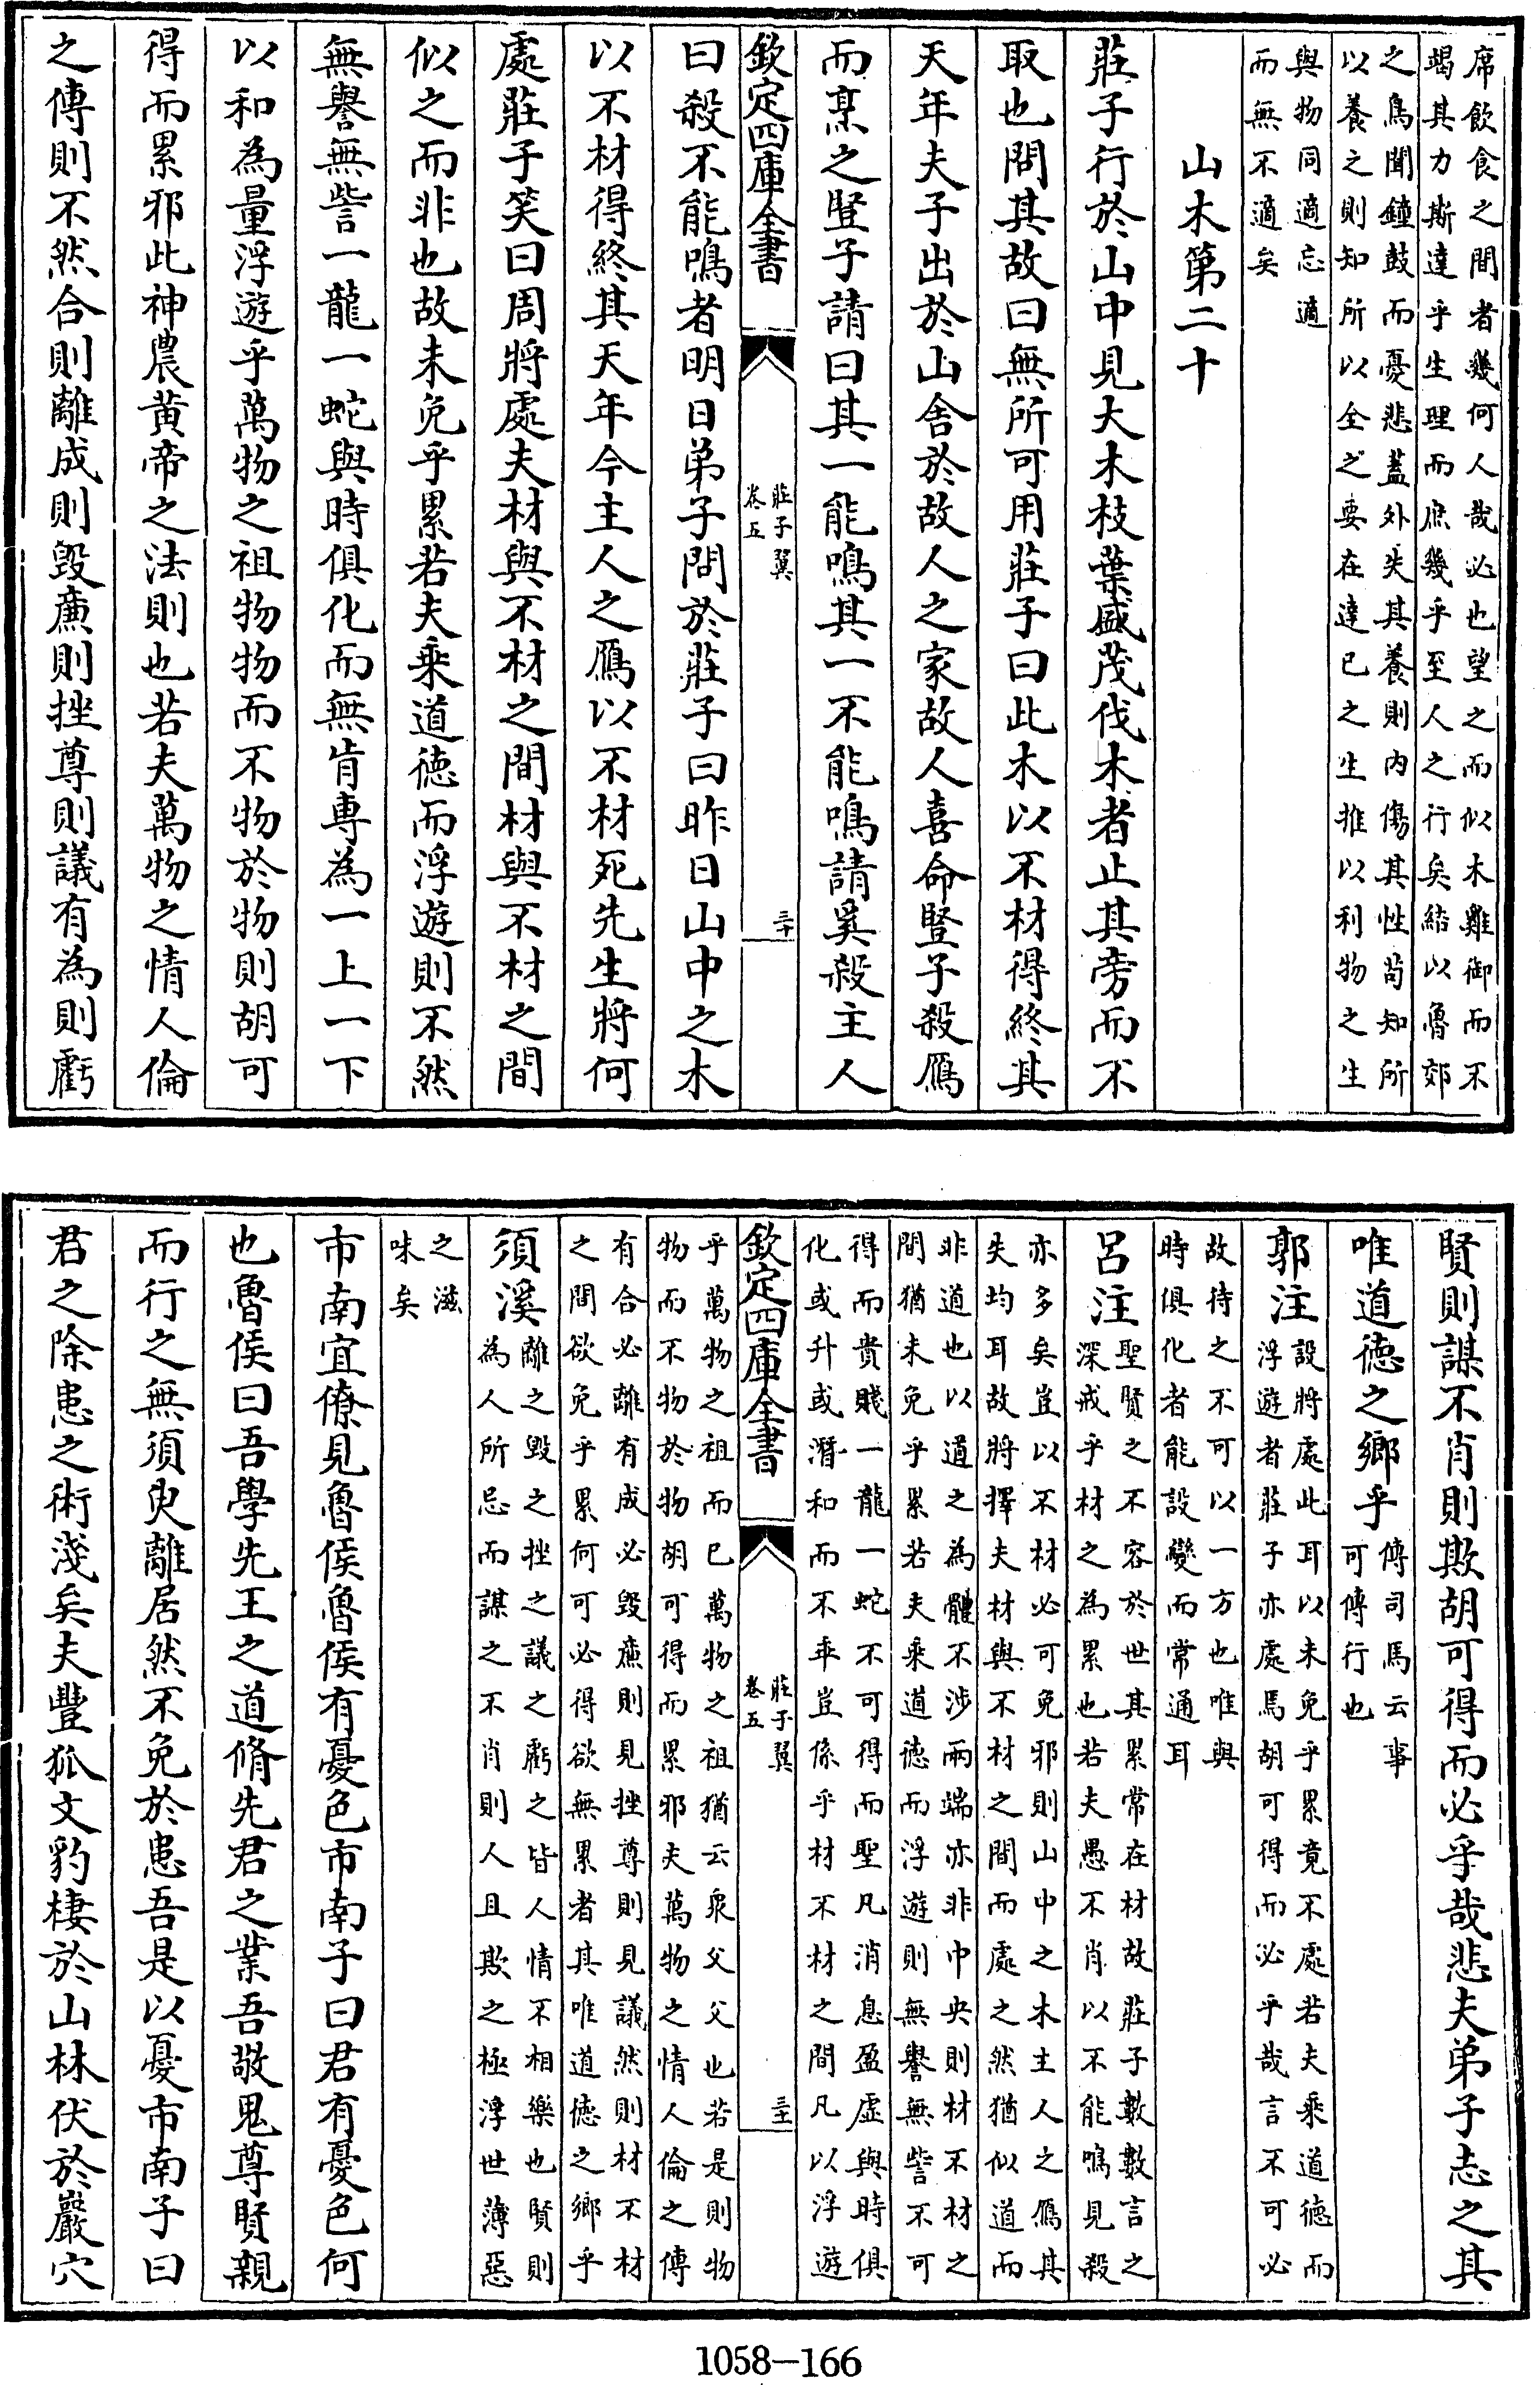 席飲食之間者幾何人哉必也望之而似木雞御而不
竭其力斯達乎生理而庶幾乎至人之行矣結以魯郊
之鳥聞鐘鼓而憂悲蓋外失其養則内傷其性苟知所
以養之則知所以全之要在達已之生推以利物之生
與物同適忘適
而無不適矣
山木第二十
莊子行於山中見大木枝葉盛茂伐木者止其旁而不
取也問其故曰無所可用莊子曰此木以不材得終其
天年夫子出於山舍於故人之家故人喜命豎子殺鴈
而烹之豎子請曰其一能鳴其一不能鳴請奚殺主人
欽定四庫全書
莊子翼
卷五
三十
曰殺不能鳴者明日弟子問於莊子曰昨日山中之木
以不材得終其天年今主人之鴈以不材死先生將何
處莊子笑曰周將處夫材與不材之間材與不材之間
似之而非也故未免乎累若夫乘道德而浮遊則不然
無譽無訾一龍一蛇與時俱化而無肯專為一上一下
以和為量浮遊乎萬物之祖物物而不物於物則胡可
得而累邪此神農黄帝之法則也若夫萬物之情人倫
之傳則不然合則離成則毁㢘則挫尊則議有為則虧
賢則謀不肖則欺胡可得而必乎哉悲夫弟子志之其
唯道德之鄉乎
傳司馬云事
可傳行也
郭注
設將處此耳以未免乎累竟不處若夫乘道德而
浮遊者莊子亦處焉胡可得而必乎哉言不可必
故待之不可以一方也唯與
時俱化者能設變而常通耳
呂注
聖賢之不容於世其累常在材故莊子數數言之
深戒乎材之為累也若夫愚不肖以不能鳴見殺
亦多矣豈以不材必可免邪則山中之木主人之鴈其
失均耳故將擇夫材與不材之間而處之然猶似道而
非道也以道之為體不涉兩端亦非中央則材不材之
間猶未免乎累若夫乘道德而浮遊則無譽無訾不可
得而貴賤一龍一蛇不可得而聖凡消息盈虛與時俱
化或升或潛和而不乖豈係乎材不材之間凡以浮遊
欽定四庫全書
莊子翼
卷五
三十一
乎萬物之祖而已萬物之祖猶云衆父父也若是則物
物而不物於物胡可得而累邪夫萬物之情人倫之傳
有合必離有成必毁㢘則見挫尊則見議然則材不材
之間欲免乎累何可必得欲無累者其唯道德之鄉乎
須溪
離之毁之挫之議之虧之皆人情不相樂也賢則
為人所忌而謀之不肖則人且欺之極浮世薄惡
之滋
味矣
市南宜僚見魯侯魯侯有憂色市南子曰君有憂色何
也魯侯曰吾學先王之道脩先君之業吾敬鬼尊賢親
而行之無須臾離居然不免於患吾是以憂市南子曰
君之除患之術淺矣夫豐狐文豹棲於山林伏於巖穴
1058—166